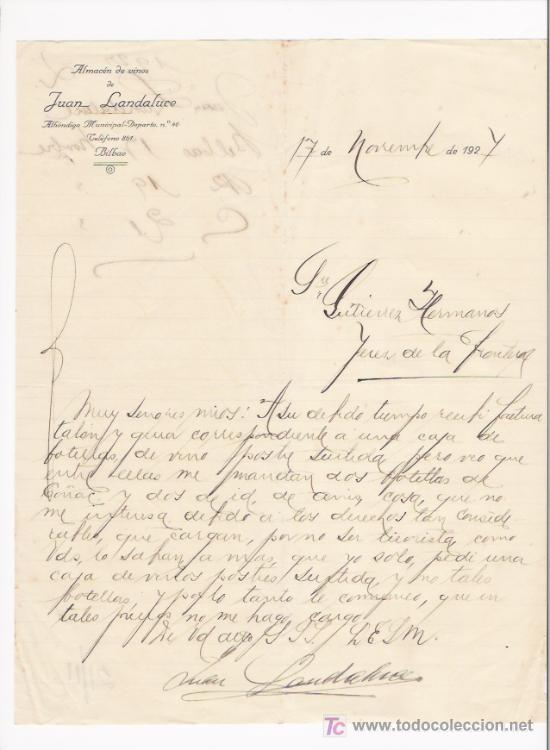 Almacén de vinos
de
Juan Landaluce
Alhóndiga Municipal-Departo. n.º 46
Teléfono 851
Bilbao
17 de Novembre de 1927
Sres Gutierrez Hermanos
Jerez de la Frontera
Muy Senores mios: A su debido tiempo recibi factura
talon y guia correspondiente a una caja de
botellas, de vino postre surtida pero veo que
entre ellas me mandan dos botellas de
Coñac y dos de id, de anis, cosa, que no
me interesa debido a los derechos tan conside
rables, que cargan, por no ser licorista, como
Vds, lo saban, a mas, que yo solo, pedi una
caja de vinos postres surtida, y no tales
botellas; y por lo tanto le comunico, que en
tales precios no me hago cargo.
De Vd S.S. L.E.S.M.
Juan Landaluce
www.todocoleccion.net